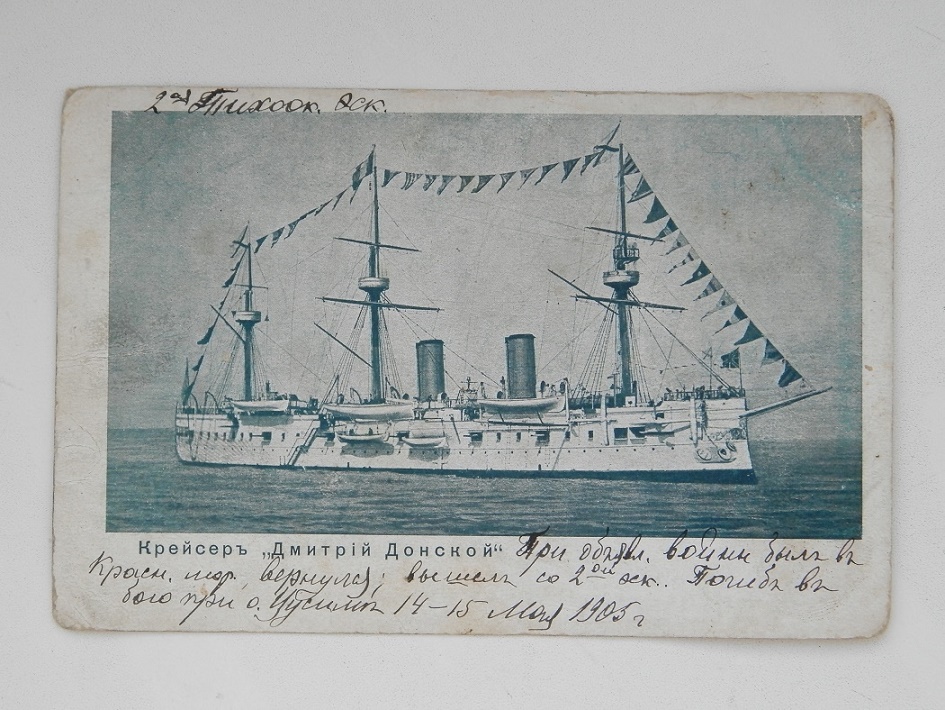 2ая Тихоок. эск.
Крейсеръ „Дмитрій Донской“ При объявл. войны былъ въ
Красн. мор., вернулся; вышелъ со 2ой эск.. Погибъ въ
бою при о. Цусима 14–15 Мая 1905 г